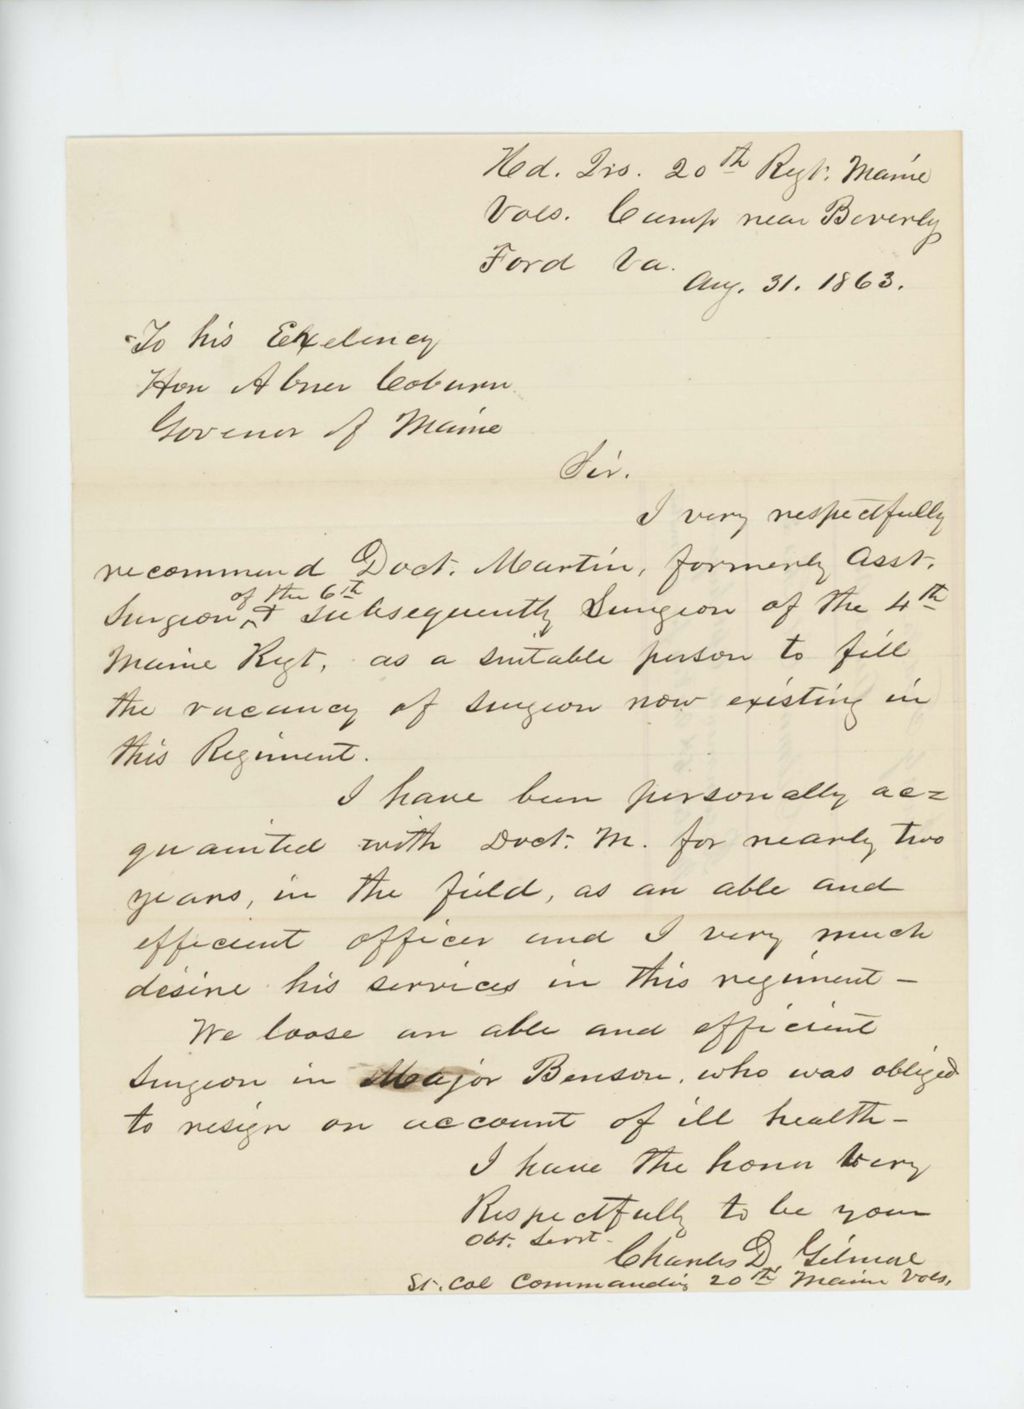 Hd. Qrs. 20th Regt. Maine
Vols. Camp near Beverly
Ford Va.
Aug. 31. 1863.
To his Exelency
Hon Abner Coburn
Govenor of Maine
Sir.
I very respectfully
recommend Doct. Martin, formerly Asst.
of the 6th
Surgeon, & subsequently Surgeon of the 4th
Maine Regt, as a suitable person to fill
the vacancy of surgeon now existing in
this Regiment.
I have been personally ac=
quainted with Doct. M. for nearly two
years, in the field, as an able and
efficient officer and I very much
desire his services in this regiment –
We loose an able and efficient
Surgeon in Major Benson, who was obliged
to resign on account of ill health –
I have the honor very
Respectfully to be your
Obt. Servt.
Charles D. Gilmore
Lt. Col Commanding 20th Maine Vols.